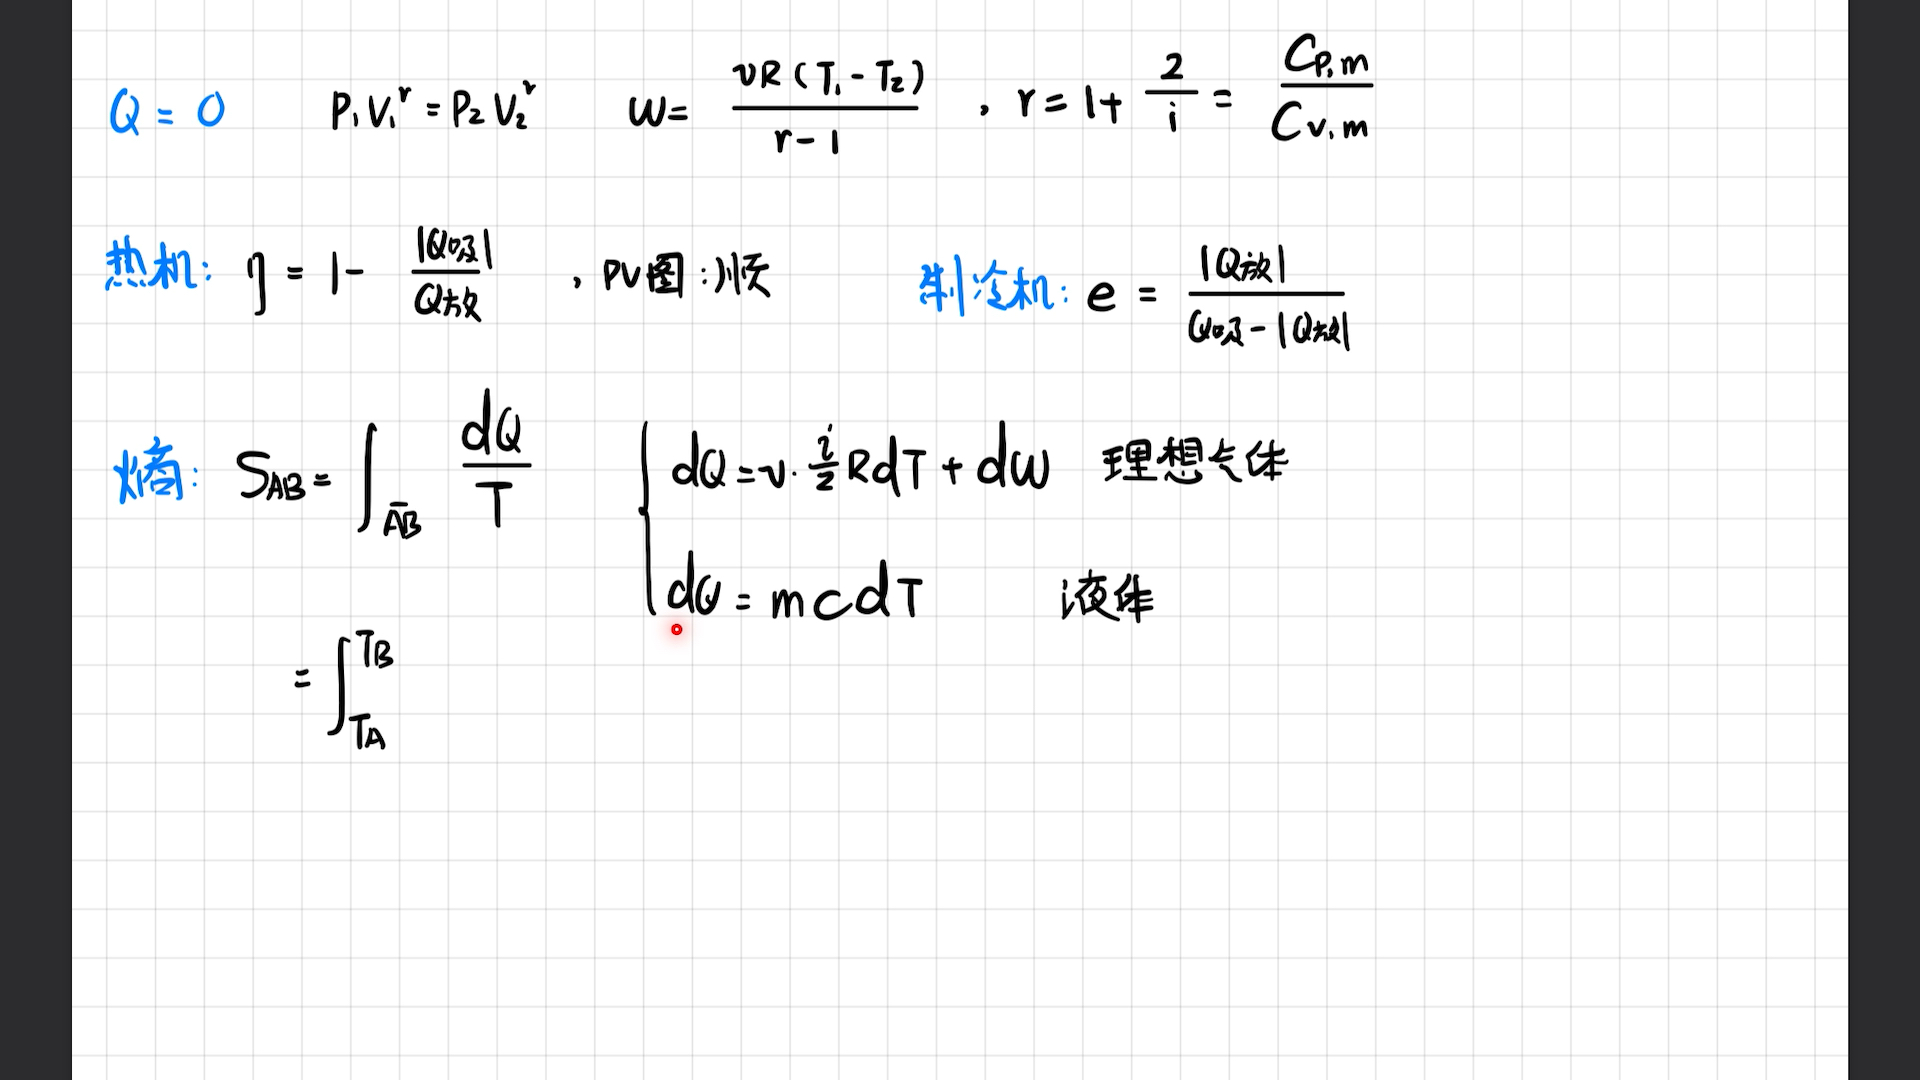 Q = 0 P₁V₁^r = P₂V₂^r W = νR(T₁-T₂)/(r-1) , r = 1 + 2/i = Cp,m/Cv,m
热机: η = 1 - |Q吸|/Q放 , PV图:顺 制冷机: e = |Q放|/(Q吸-|Q放|)
熵: S_AB = ∫_AB dQ/T { dQ = ν·i/2 RdT + dW 理想气体
dQ = mcdT 液体
= ∫_TA^TB